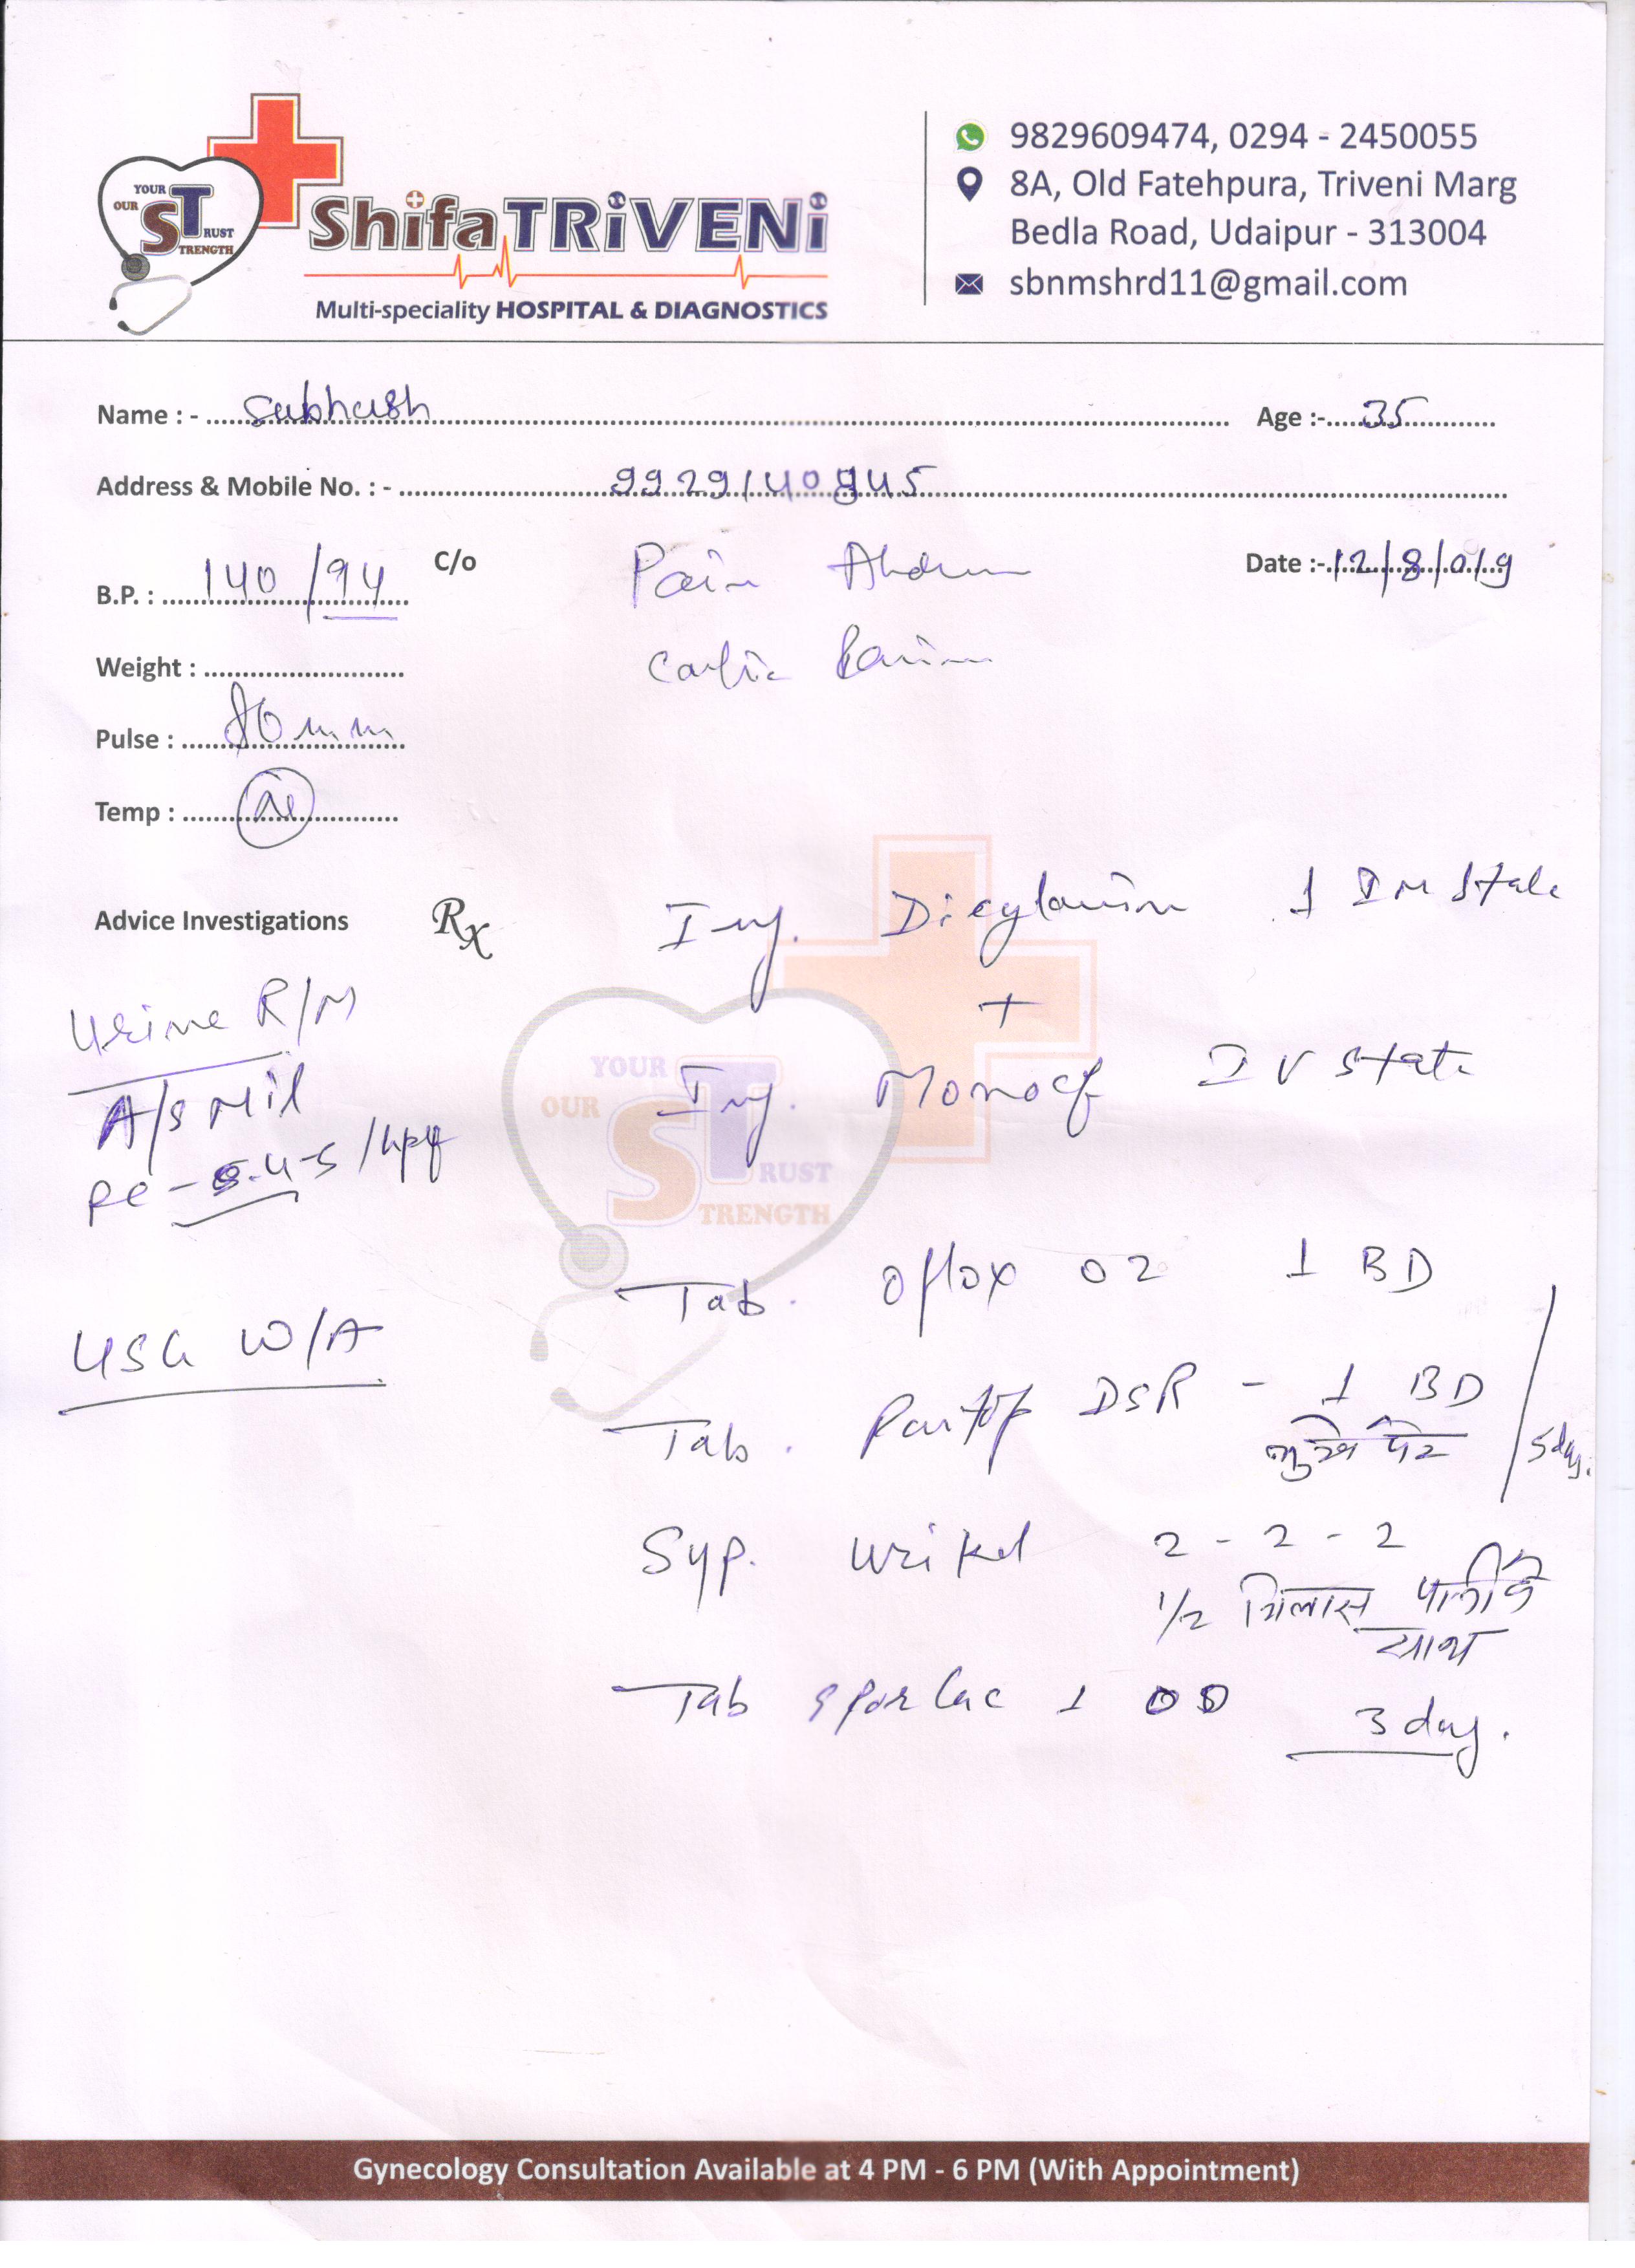 YOUR
OUR ST RUST
TRENGTH
Shifa TRiVENi
Multi-speciality HOSPITAL & DIAGNOSTICS
9829609474, 0294 - 2450055
8A, Old Fatehpura, Triveni Marg
Bedla Road, Udaipur - 313004
sbnmshrd11@gmail.com
Name : - Subhash Age :- 35
Address & Mobile No. : - 9929140945
B.P. : 140/94 C/o Pain Date :- 12/8/019
Weight :
Pulse : 80
Temp :
Advice Investigations Rx Inj. 1 IM State
Urine R/M
+
A/S Nil Inj. Monocef IV State
YOUR
OUR ST RUST
TRENGTH
/hpf
Tab. Oflox 02 1 BD
USG W/A
Tab. Pantop DSR - 1 BD
पेट 5 day.
Syp. Urikel 2 - 2 - 2
1/2 गिलास पानी के
साथ
Tab Sporlac 1 OD 3 day.
Gynecology Consultation Available at 4 PM - 6 PM (With Appointment)